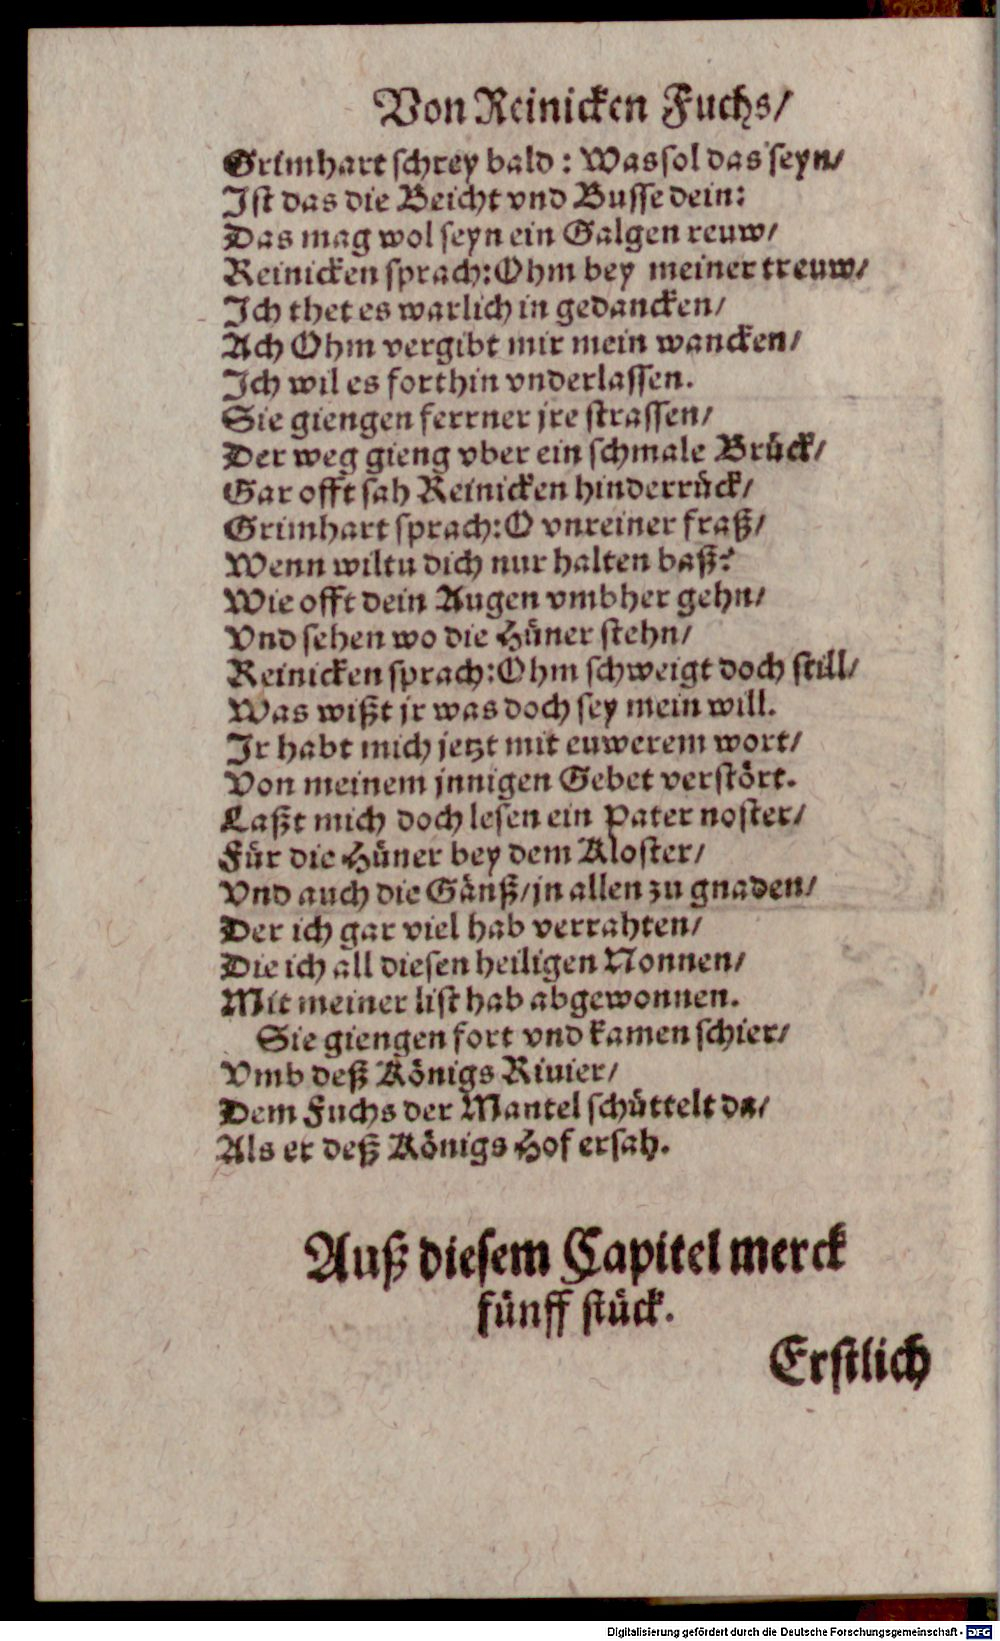 Von Reinicken Fuchs/
Grimhart schrey bald: Was sol das seyn/
Ist das die Beicht vnd Busse dein:
Das mag wol seyn ein Galgen reuw/
Reinicken sprach: Ohm bey meiner treuw/
Ich thet es warlich in gedancken/
Ach Ohm vergibt mir mein wancken/
Ich wil es forthin vnderlassen.
Sie giengen ferrner jre strassen/
Der weg gieng vber ein schmale Brück/
Gar offt sah Reinicken hinderrück/
Grimhart sprach: O vnreiner fraß/
Wenn wiltu dich nur halten baß?
Wie offt dein Augen vmbher gehn/
Vnd sehen wo die Hüner stehn/
Reinicken sprach: Ohm schweigt doch still/
Was wißt jr was doch sey mein will.
Ir habt mich jetzt mit euwerem wort/
Von meinem jnnigen Gebet verstört.
Laßt mich doch lesen ein Pater noster/
Für die Hüner bey dem Kloster/
Vnd auch die Gänß/jn allen zu gnaden/
Der ich gar viel hab verrahten/
Die ich all diesen heiligen Nonnen/
Mit meiner list hab abgewonnen.
Sie giengen fort vnd kamen schier/
Vmb deß Königs Riuier/
Dem Fuchs der Mantel schüttelt da/
Als er deß Königs Hof ersah.
Auß diesem Capitel merck
fünff stück.
Erstlich
Digitalisierung gefördert durch die Deutsche Forschungsgemeinschaft - DFG